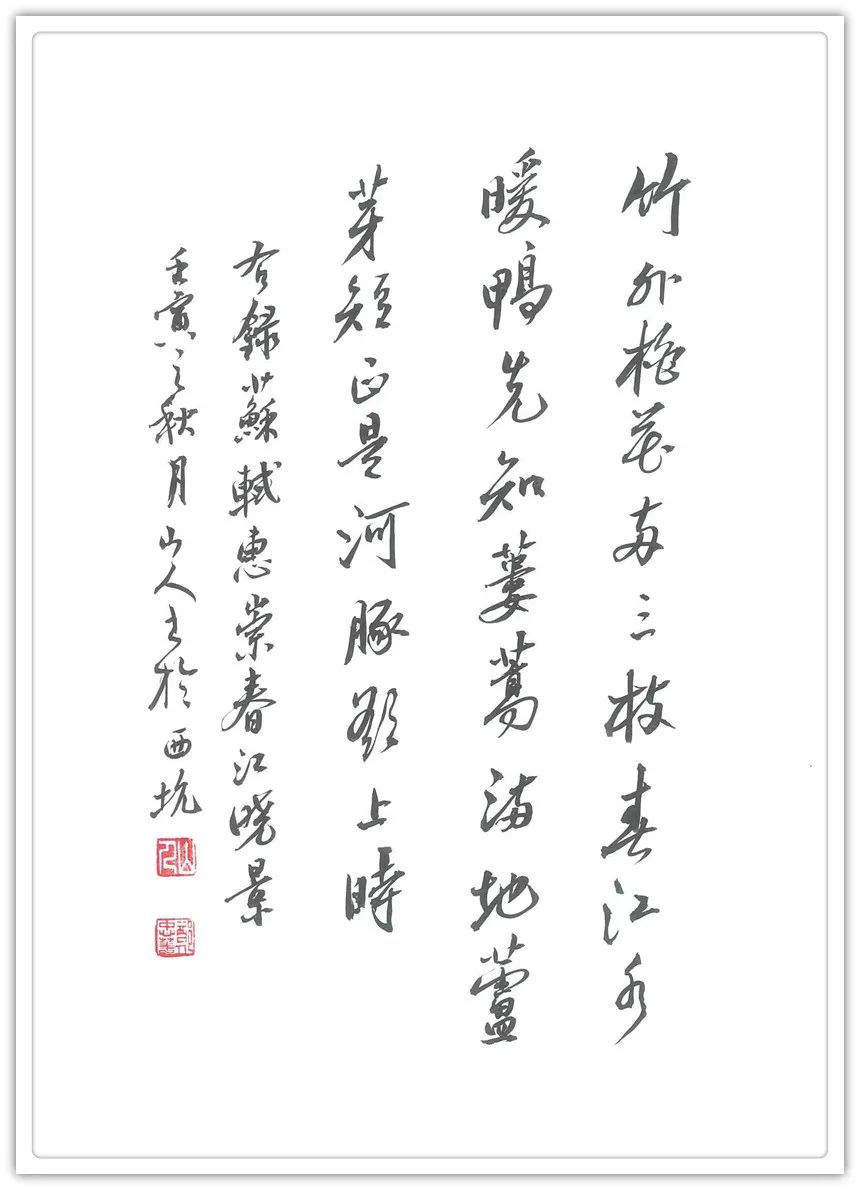 竹外桃花兩三枝春江水
暖鴨先知蔞蒿滿地蘆
芽短正是河豚欲上時
右錄蘇軾惠崇春江曉景
壬寅之秋月山人書於西坑
山人